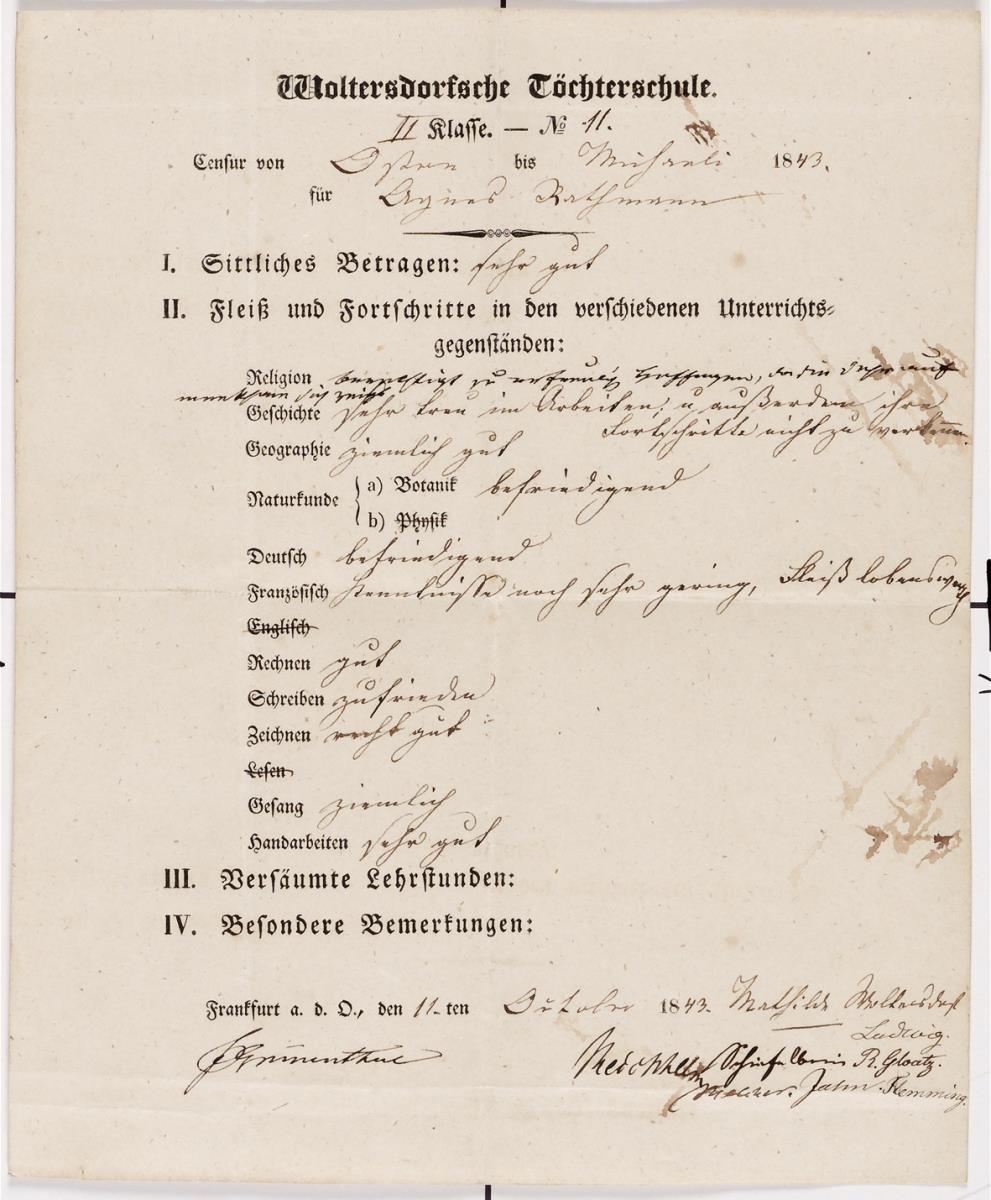 Woltersdorfsche Töchterschule.
II Klasse. — No 11.
Censur von Ostern bis Michaeli 1843.
für Agnes Rathmann
I. Sittliches Betragen: sehr gut
II. Fleiß und Fortschritte in den verschiedenen Unterrichts-
gegenständen:
Religion berechtigt zu Hoffnungen, auf
merksam sich zeigt
Geschichte sehr treu im Arbeiten; u außerdem ihre
Fortschritte nicht zu verkennen.
Geographie ziemlich gut
Naturkunde a) Botanik befriedigend
b) Physik
Deutsch befriedigend
Französisch Kenntnisse noch sehr gering, Fleiß lobenswerth
Englisch
Rechnen gut
Schreiben zufrieden
Zeichnen recht gut
Lesen
Gesang ziemlich
Handarbeiten sehr gut
III. Versäumte Lehrstunden:
IV. Besondere Bemerkungen:
Frankfurt a. d. O., den 11-ten October 1843. Mathilde Woltersdorf
Ludwig.
Grünenthal Reschke Schiefelbein R. Gloatz.
Jahn. Flemming.